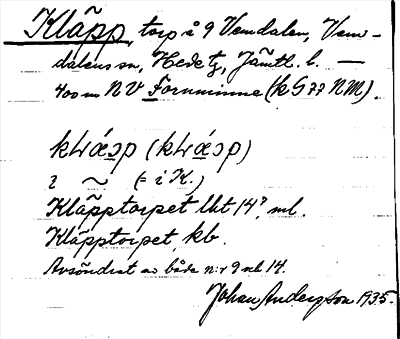 Kläpp, torp å 9 Vemdalen, Vem-
dalens sn, Hede tg, Jämtl. l. —
400 m NV Fornminne (kG 77 NM).
(
i ~ (= i K.)
Kläpptorpet lht 14², ml.
Kläpptorpet, kb.
Avsöndrat av både n:r 9 och 14.
Johan Anderzson 1935.